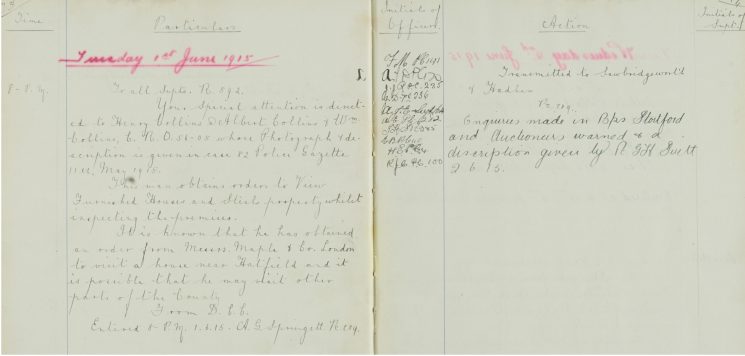 Time
Particulars
Initials of
Officers
Action
Initials of
Tuesday 1st June 1915
8 - P.M.
To all Septs. R. 592.
Your special attention is direct-
ed to Henry Collins & Albert Collins & Wm
Collins, C.R.O. 56-05 whose Photograph & de-
scription is given in case 82 Police Gazette
11th May 1915.
This man obtains orders to View
Furnished Houses and Steal property whilst
inspecting the premises.
It is known that he has obtained
an order from Messrs. Maple & Co. London
to visit a house near Hatfield and it
is possible that he may visit other
parts of the County
From D.C.C.
Entered 8-P.M. 1.6.15. A.G. Springett
1.
100
Transmitted to Sawbridgeworth
& Hadham
Enquiries made in Bps Stortford
and Auctioneers warned & a
description given by
2.6.15.